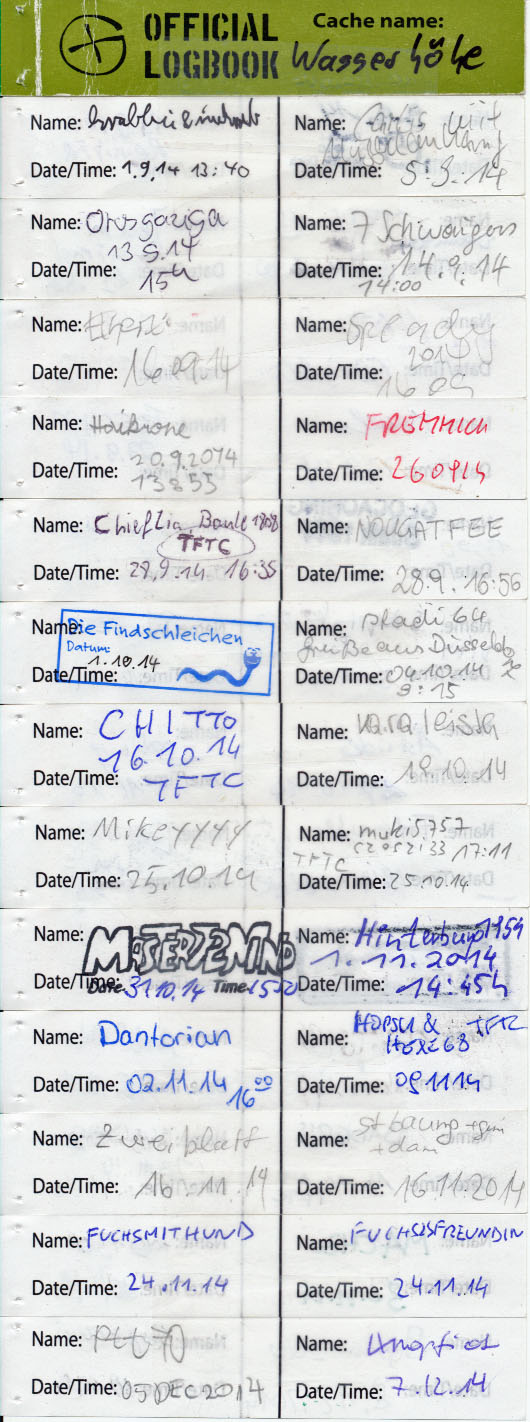 OFFICIAL LOGBOOK
Cache name:
Wasserhöhe
Name:
Date/Time: 1.9.14 13:40
Name: mit
Date/Time: 5.9.14
Name:
13 9.14
Date/Time: 15h
Name: 7 Schwaigers
Date/Time: 14.9.14
14:00
Name:
Date/Time: 16 09 14
Name:
2014
Date/Time: 16 09
Name:
Date/Time: 20.9.2014
13:55
Name: FREMMICH
Date/Time: 260914
Name: Chief Lia, Banle 1808
TFTC
Date/Time: 28.9.14 16:35
Name: NOUGATFEE
Date/Time: 28.9. 16:56
Name: Die Findschleichen
Datum:
1.10.14
Date/Time:
Name: pladi64
Grüße aus Düsseldo
Date/Time: 04.10.14
9:15
Name: CHITTO
16.10.14
Date/Time: TFTC
Name:
Date/Time: 19.10.14
Name: Mikeyyyy
Date/Time: 25.10.14
Name: muki5757
17:11
TFTC
Date/Time: 25.10.14
Name: MASTERDEMIND
Date/Time:
Date: 31.10.14 Time:
Name: Hinterburg1959
1.11.2014
Date/Time: 14:45h
Name: Dantorian
Date/Time: 02.11.14 16 00
Name: HOPSU & TFTC
HEXE68
Date/Time: 091114
Name: Zweiblatt
Date/Time: 16.11.14
Name:
Date/Time: 16.11.2014
Name: FUCHSMITHUND
Date/Time: 24.11.14
Name: FUCHSISFREUNDIN
Date/Time: 24.11.14
Name:
Date/Time: 05 DEC 2014
Name:
Date/Time: 7.12.14